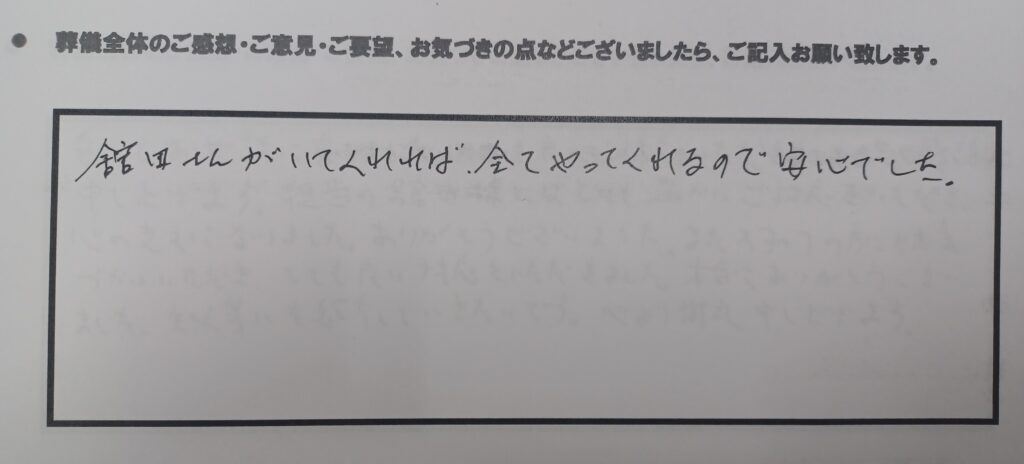 ● 葬儀全体のご感想・ご意見・ご要望、お気づきの点などございましたら、ご記入お願い致します。
舘田さんがいてくれれば、全てやってくれるので安心でした。